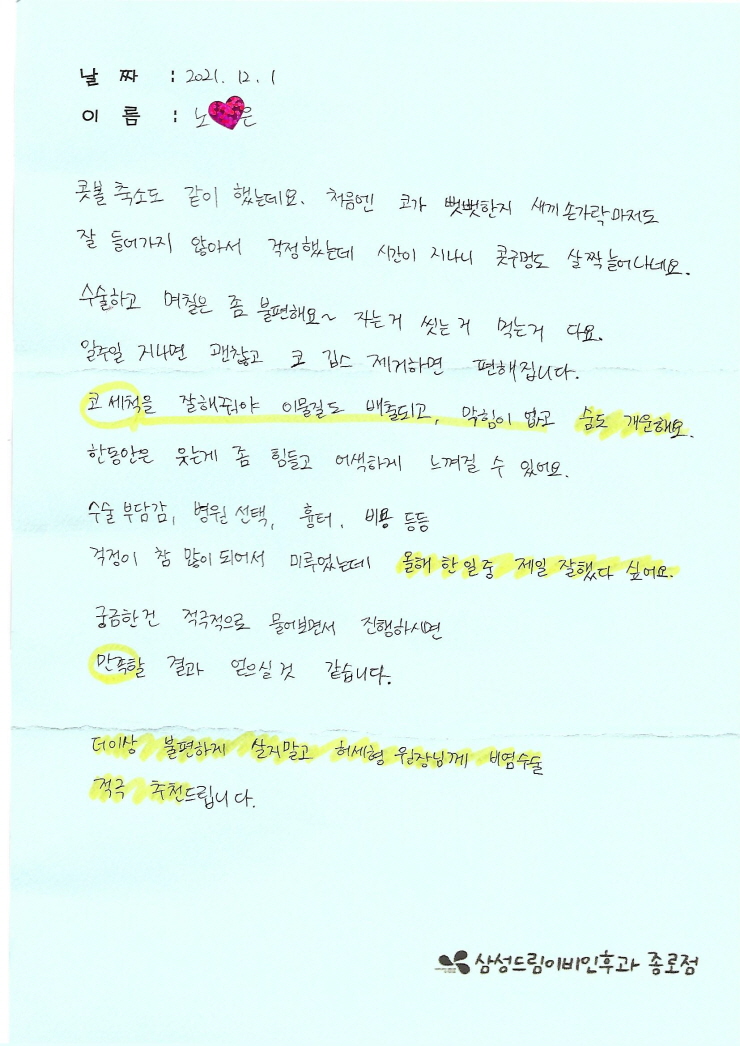 날 짜 : 2021. 12. 1
이 름 : 노 은
콧볼 축소도 같이 했는데요. 처음엔 코가 뻣뻣한지 새끼손가락마저도
잘 들어가지 않아서 걱정했는데 시간이 지나니 콧구멍도 살짝 늘어나네요.
수술하고 며칠은 좀 불편해요~ 자는거 씻는거 먹는거 다요.
일주일 지나면 괜찮고 코 깁스 제거하면 편해집니다.
코 세척을 잘해줘야 이물질도 배출되고, 막힘이 없고 숨도 개운해요.
한동안은 웃는게 좀 힘들고 어색하게 느껴질 수 있어요.
수술 부담감, 병원 선택, 흉터, 비용 등등
걱정이 참 많이 되어서 미루었는데 올해 한 일 중 제일 잘했다 싶어요.
궁금한건 적극적으로 물어보면서 진행하시면
만족할 결과 얻으실것 같습니다.
더이상 불편하게 살지말고 허세형 원장님께 비염수술
적극 추천드립니다.
삼성드림이비인후과 종로점